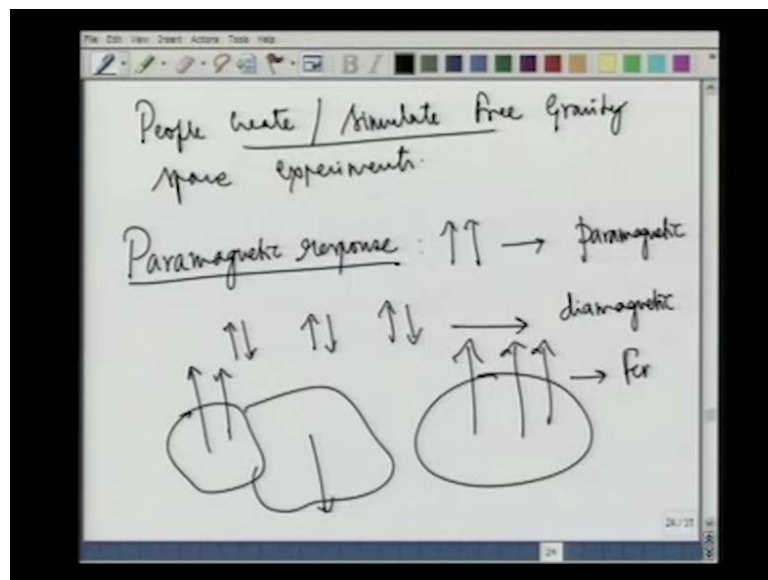 File Edit View Insert Actions Tools Help
B I
People create / simulate free Gravity
space experiments.
Paramagnetic response : ↑↑ → paramagnetic
↑↓ ↑↓ ↑↓ → diamagnetic
→ Fer
24/31
24